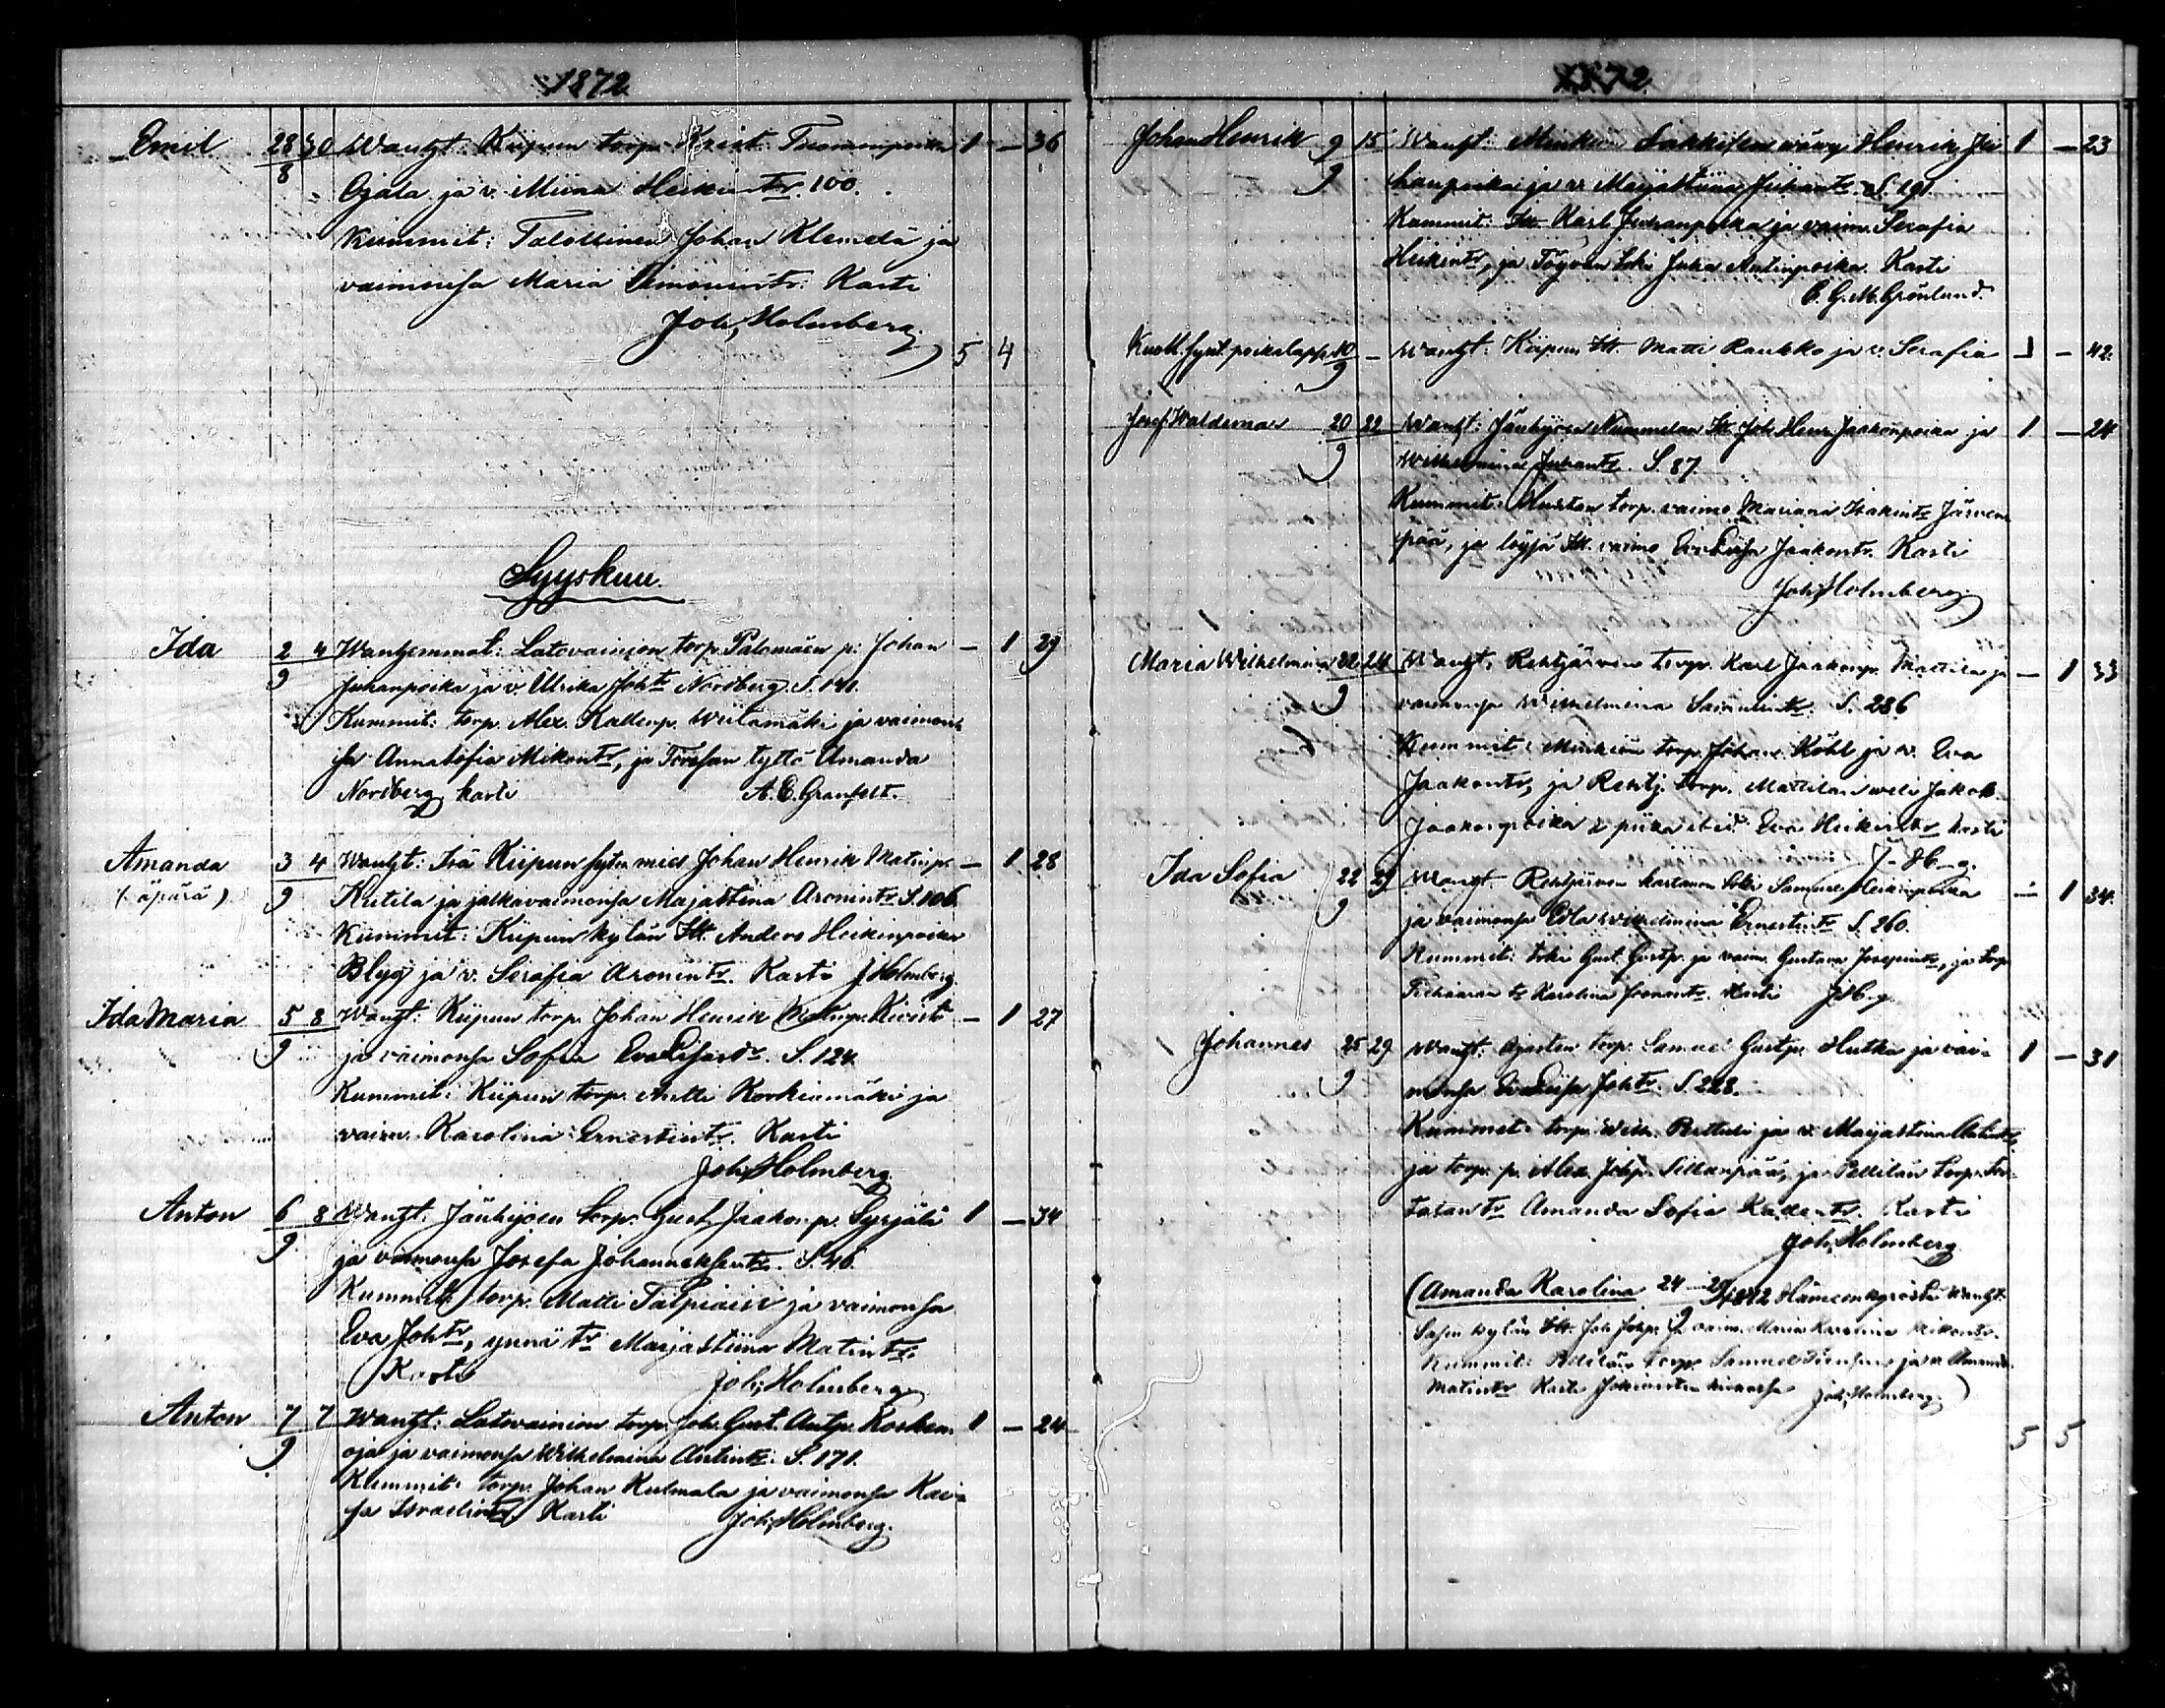 1872
Emil 28/8 30 Wanht. Kiipun torp. Krist. Tuomanpoika 1 — 36
Ojala ja v. Miina Heikintr. 100.
Kummit: Talollinen Johan Klemelä ja
vaimonsa Maria Simonintr. Kasti
Joh. Holmberg.
5 4
Syyskuu.
Ida 2/9 4 Wanhemmat: Latovainion torp. Palomäen p. Johan — 1 29
Juhanpoika ja v. Ulrika Johtr Nordberg S. 141.
Kummit: torp. Alex. Kallenp. Wiitamäki ja vaimon
sa Annasofia Mikontr, ja Forssan tyttö Amanda
Nordberg kasti A. E. Granfelt.
Amanda 3/9 4 Wanht: Kiipun Johan Henrik Matinp. — 1 28
(äpärä) Kutila ja jalkavaimonsa Majastina Aronintr S. 106.
Kummit: Kiipun kylän Itt. Anders Heikinpoika
Blyg ja v. Serafia Aronintr. Kasti J. Holmberg.
Ida Maria 5/9 8 Wanht: Kiipun torp. Johan Henrik Matinp. Kivistö — 1 27
ja vaimonsa Sofia S. 124
Kummit: Kiipun torp. Antti Korkiamäki ja
vaim. Karolina Ernestintr. Kasti
Joh. Holmberg
Anton 6/9 8 Wanht: Jänhijoen torp. Gust. Jaakonp. Syrjälä 1 — 34
ja vaimonsa Josefa Johanneksentr. S.
Kummit: torp. Matti Talpiain ja vaimonsa
Eva Johtr, ynnä tr Marjastiina Matintr.
Kasti Joh. Holmberg
Anton 7/9 7 Wanht: Latovainion torp. Joh. Gust. Antp. Kosken 1 — 24
oja ja vaimonsa Wilhelmina Antintr. S. 171.
Kummit: torp. Johan Kulmala ja vaimonsa Kai-
sa Israelintr Kasti Joh. Holmberg.
1872
Johan Henrik 9/9 15 Wanht: Minkiön wävy Henrik Ju 1 — 23
hanpoika ja v. Maijastiina Juhantr S. 191
Kummit: Itt. Karl Juhanpoika ja vaim. Serafia
Heikintr, ja renki Juha Antinpoika. Kasti
C. G. M. Grönlund.
Kuoll. synt. poikalaps 10/9 — Wanht: Kiipun Itt. Matti Raukko ja v. Serafia 1 — 42
Josef Waldemar 20/9 22 Wanht: Jänhijoen Nummelan Itt. Joh. Henr. Jaakonpoika ja 1 — 24
Wilhelmina Juhantr. S. 87.
Kummit: torp. vaimo Mariana Isakintr Järven
pää, ja Itt. vaimo Jaakontr. Kasti
Joh. Holmberg
Maria Wilhelmina 22/9 24 Wanht: Rehtijärven torp. Karl Jaakonp. Mattila ja — 1 33
vaimonsa Wilhelmina S. 286
Kummit: Minkiön torp. Johan Köhl ja v. Eva
Jaakontr, ja Rehtij. torp. Mattilan weli Jakob
Jaakonpoika & piika Eva Heikintr kasti
J. Hb–g.
Ida Sofia 22/9 29 Wanht. Rehtijärven kartanon renki Samuel Heikinpoika — 1 34
ja vaimonsa Edla Wilhelmina Ernestintr S. 260.
Kummit: renki Gust. Gustp. ja vaim. Gustava Josepintr, ja torp.
tr Karolina Joonantr. Kasti J Hb g.
Johannes 25/9 29 Wanht: torp. Samuel Gustp. Hutka ja vai- 1 — 31
monsa Johtr. S. 228.
Kummit: torp. Wilh. Perttuli ja v. Maijastina Antintr,
ja torp. p. Alex. Johp. Sillanpää, ja Pellilän torp.
tr Amanda Sofia Kallentr. Kasti
Joh. Holmberg
(Amanda Karolina 24–29/9 1872 Hämeenkyröstä Wanht.
kylän Itt. Joh. Johp. ja vaim. Maria Karolina Mikontr.
Kummit: Pellilän torp. Samuel ja v. Amanda
Matintr Kasti Jokioisten Joh. Holmberg)
5 5